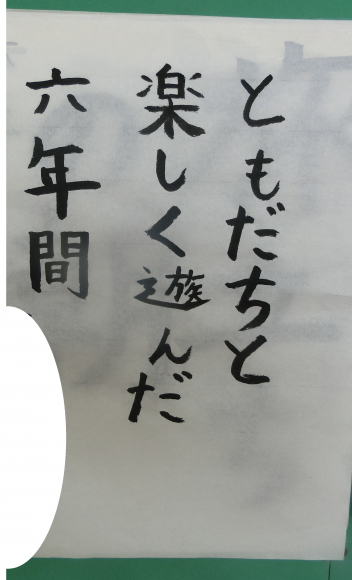 ともだちと
楽しく遊んだ
六年間